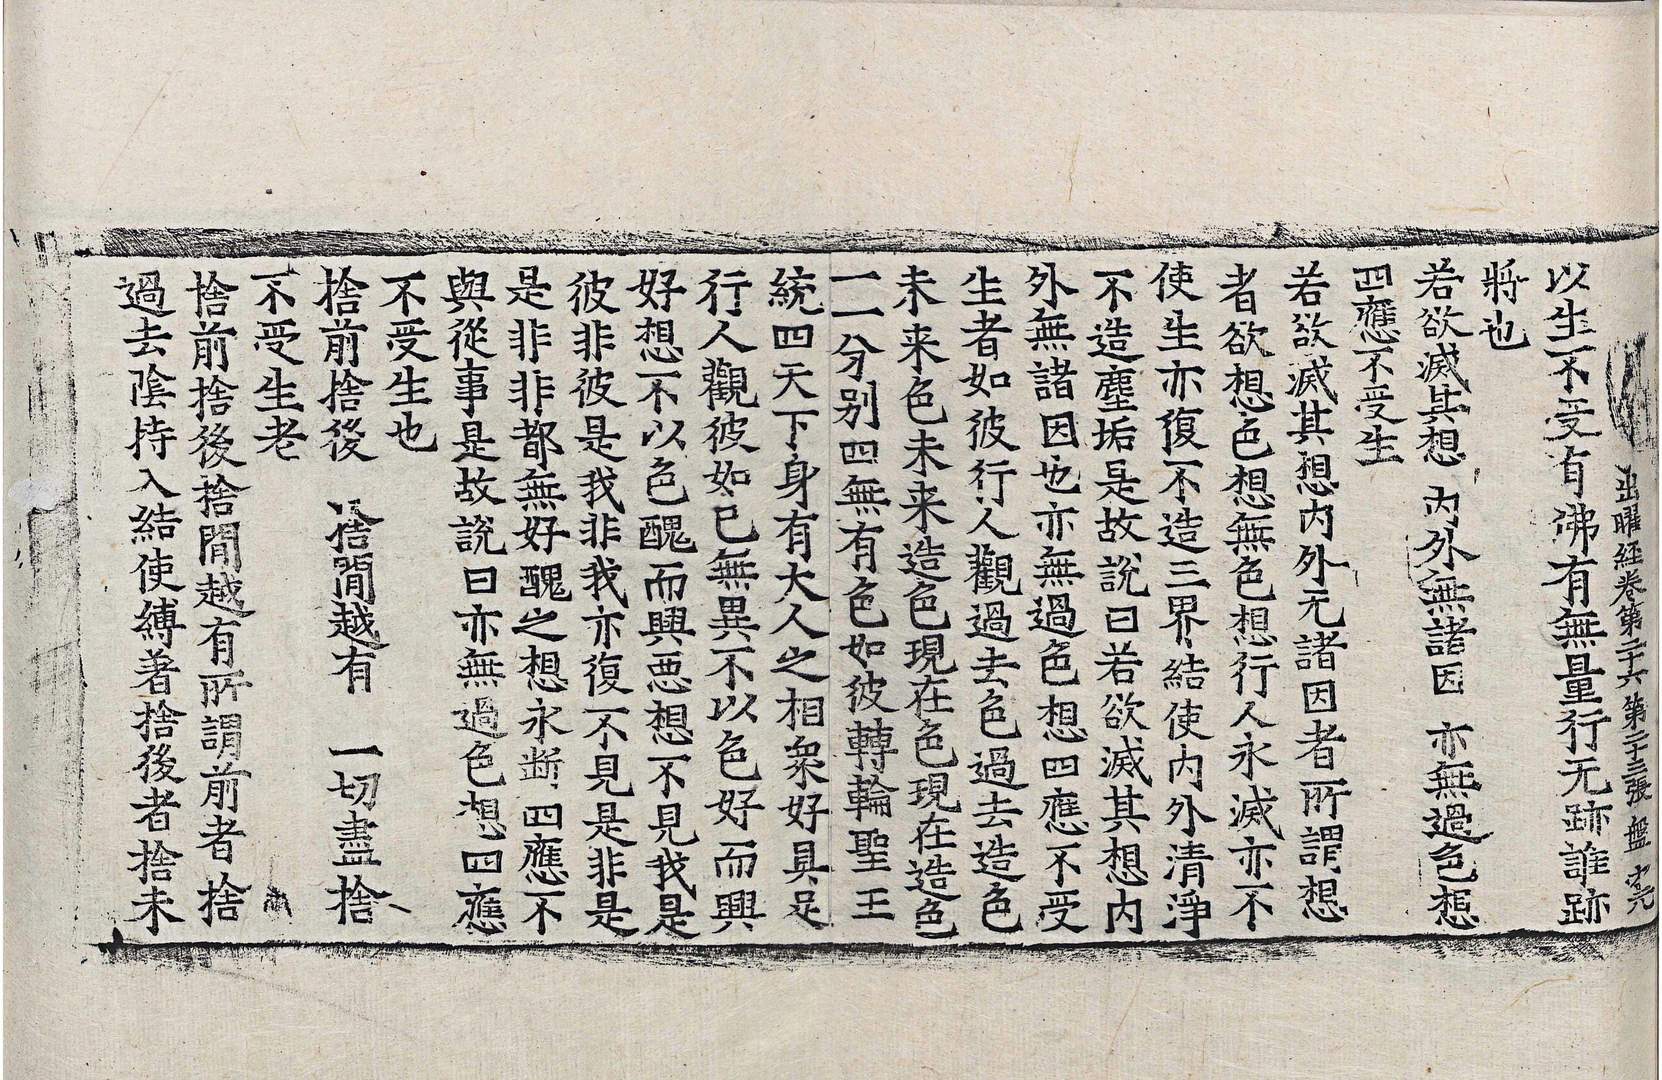 出曜經卷第二十六 第二十三張 盤
以生不受有佛有無量行无跡誰跡
將也
若欲滅其想 內外無諸因 亦無過色想
四應不受生
若欲滅其想內外无諸因者所謂想
者欲想色想無色想行人永滅亦不
使生亦復不造三界結使內外清淨
不造塵垢是故說曰若欲滅其想內
外無諸因也亦無過色想四應不受
生者如彼行人觀過去色過去造色
未来色未来造色現在色現在造色
一一分别四無有色如彼轉輪聖王
統四天下身有大人之相衆好具足
行人觀彼如已無異不以色好而興
好想不以色醜而興惡想不見我是
彼非彼是我非我亦復不見是非是
是非非都無好醜之想永断四應不
與從事是故說曰亦無過色想四應
不受生也
捨前捨後 捨閒越有 一切盡捨
不受生老
捨前捨後捨閒越有所謂前者捨
過去陰持入結使縛著捨後者捨未